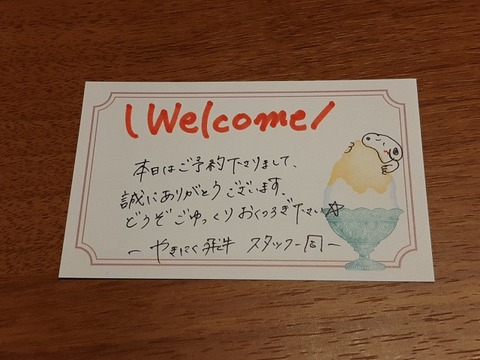 \Welcome/
本日はご予約下さりまして、
誠にありがとうございます。
どうぞごゆっくりおくつろぎ下さい☆
−やきにく 飛牛 スタッフ一同−